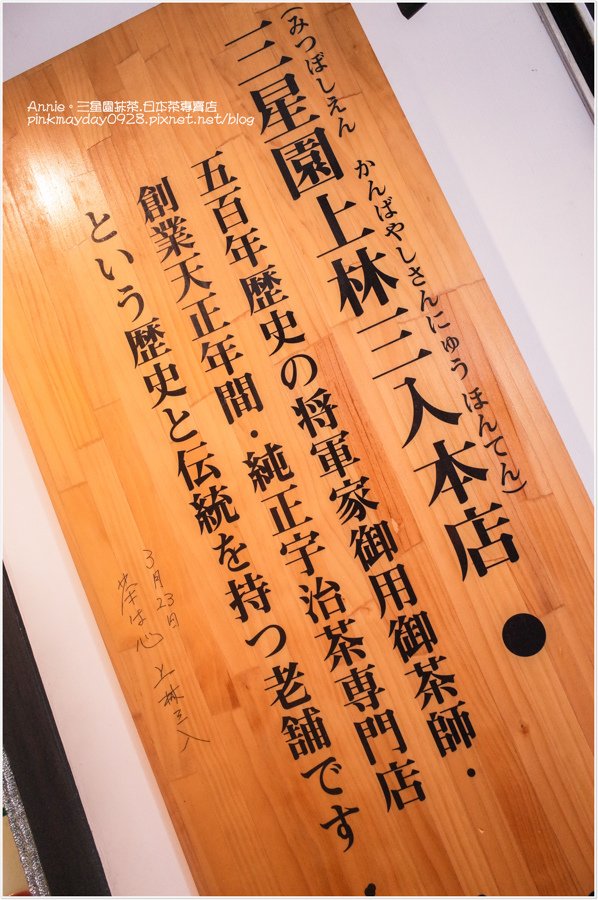 Annie。三星園抹茶.日本茶專賣店
pinkmayday0928.pixnet.net/blog
(みつぼしえん かんばやしさんにゅう ほんてん)
三星園上林三入本店●
五百年歴史の将軍家御用御茶師・
創業天正年間・純正宇治茶専門店
という歴史と伝統を持つ老舗です
3月23日
茶は心 上林三入